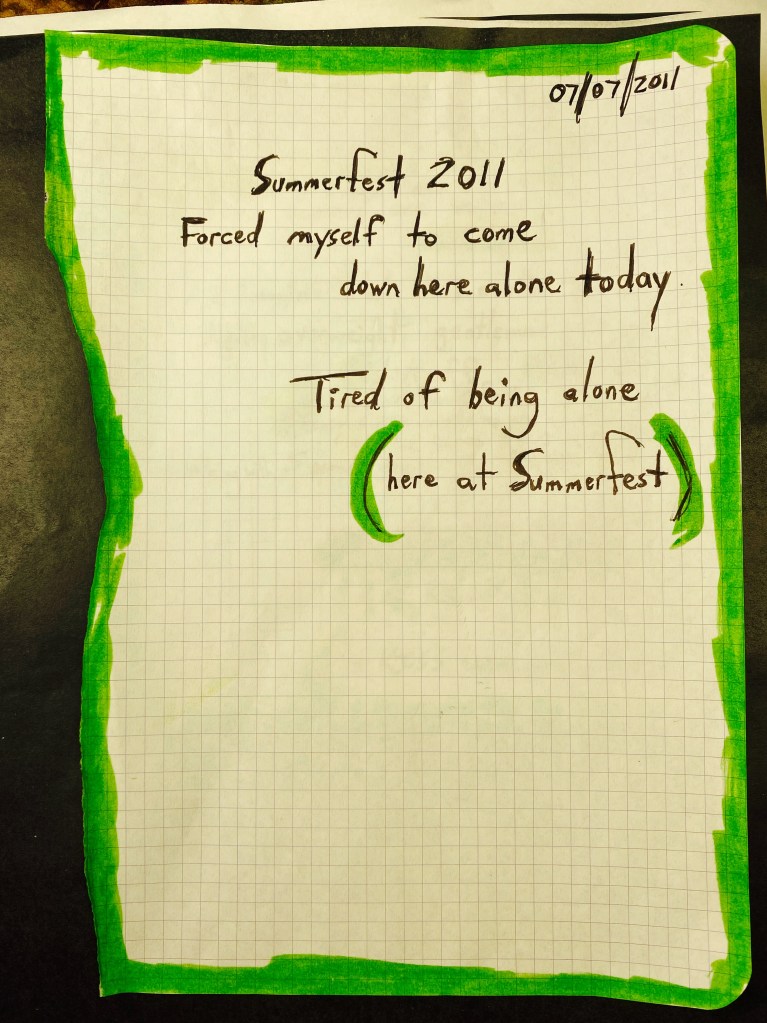 07/07/2011
Summerfest 2011
Forced myself to come
down here alone today.
Tired of being alone
(here at Summerfest)